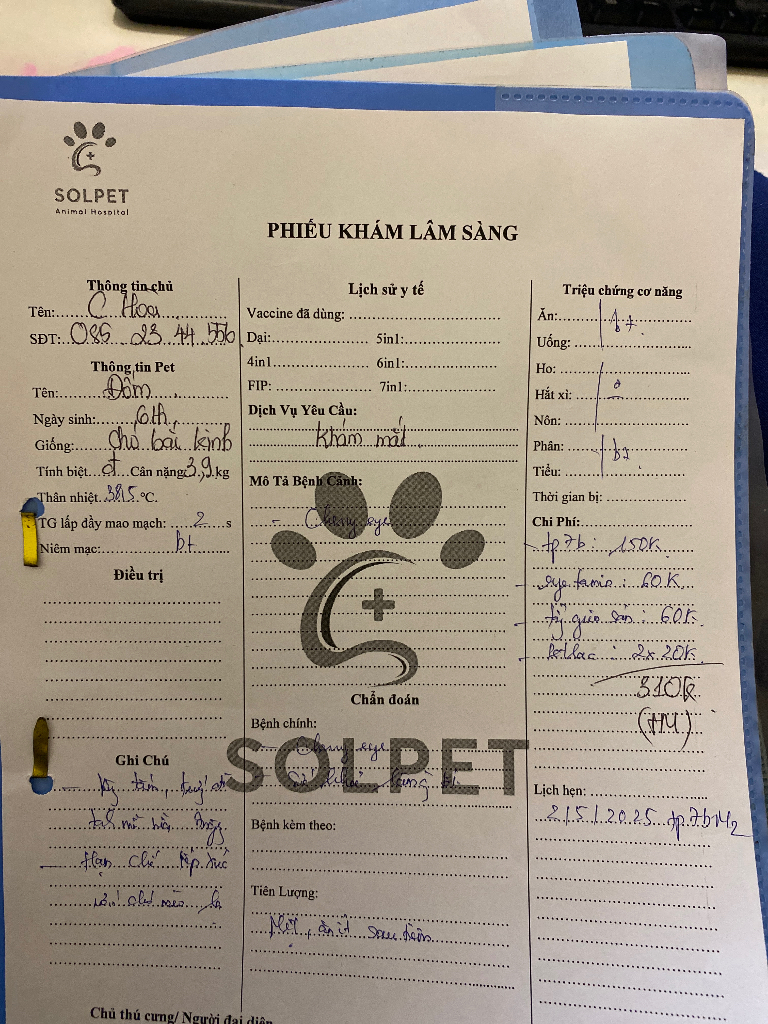 SOLPET
Animal Hospital
PHIẾU KHÁM LÂM SÀNG
Thông tin chủ
Tên: C Hoa
SĐT: 085 23 44 556
Thông tin Pet
Tên: Đốm
Ngày sinh: 6th
Giống: Chó bắc kinh
Tính biệt ♂ Cân nặng 3,9 kg
Thân nhiệt 38,5 °C.
TG lấp đầy mao mạch: 2 s
Niêm mạc: bt
Điều trị
Ghi Chú
Hạn chế tiếp xúc
Lịch sử y tế
Vaccine đã dùng:
Dại: 5in1:
4in1 6in1:
FIP: 7in1:
Dịch Vụ Yêu Cầu:
Khám mắt
Mô Tả Bệnh Cảnh:
- Cherry eye
Chẩn đoán
Bệnh chính:
- Cherry eye
SOLPET
Bệnh kèm theo:
Tiên Lượng:
Mệt, ăn ít sau tiêm
Triệu chứng cơ năng
Ăn: bt
Uống:
Ho:
Hắt xì:
Nôn:
Phân: bt
Tiểu:
Thời gian bị:
Chi Phí:
- tp7b: 150K
- eye tamin: 60K
- tẩy giun sán: 60K
2x20K
310K
(TM)
Lịch hẹn:
2/5/2025 tp7bM2
Chủ thú cưng/ Người đại diện